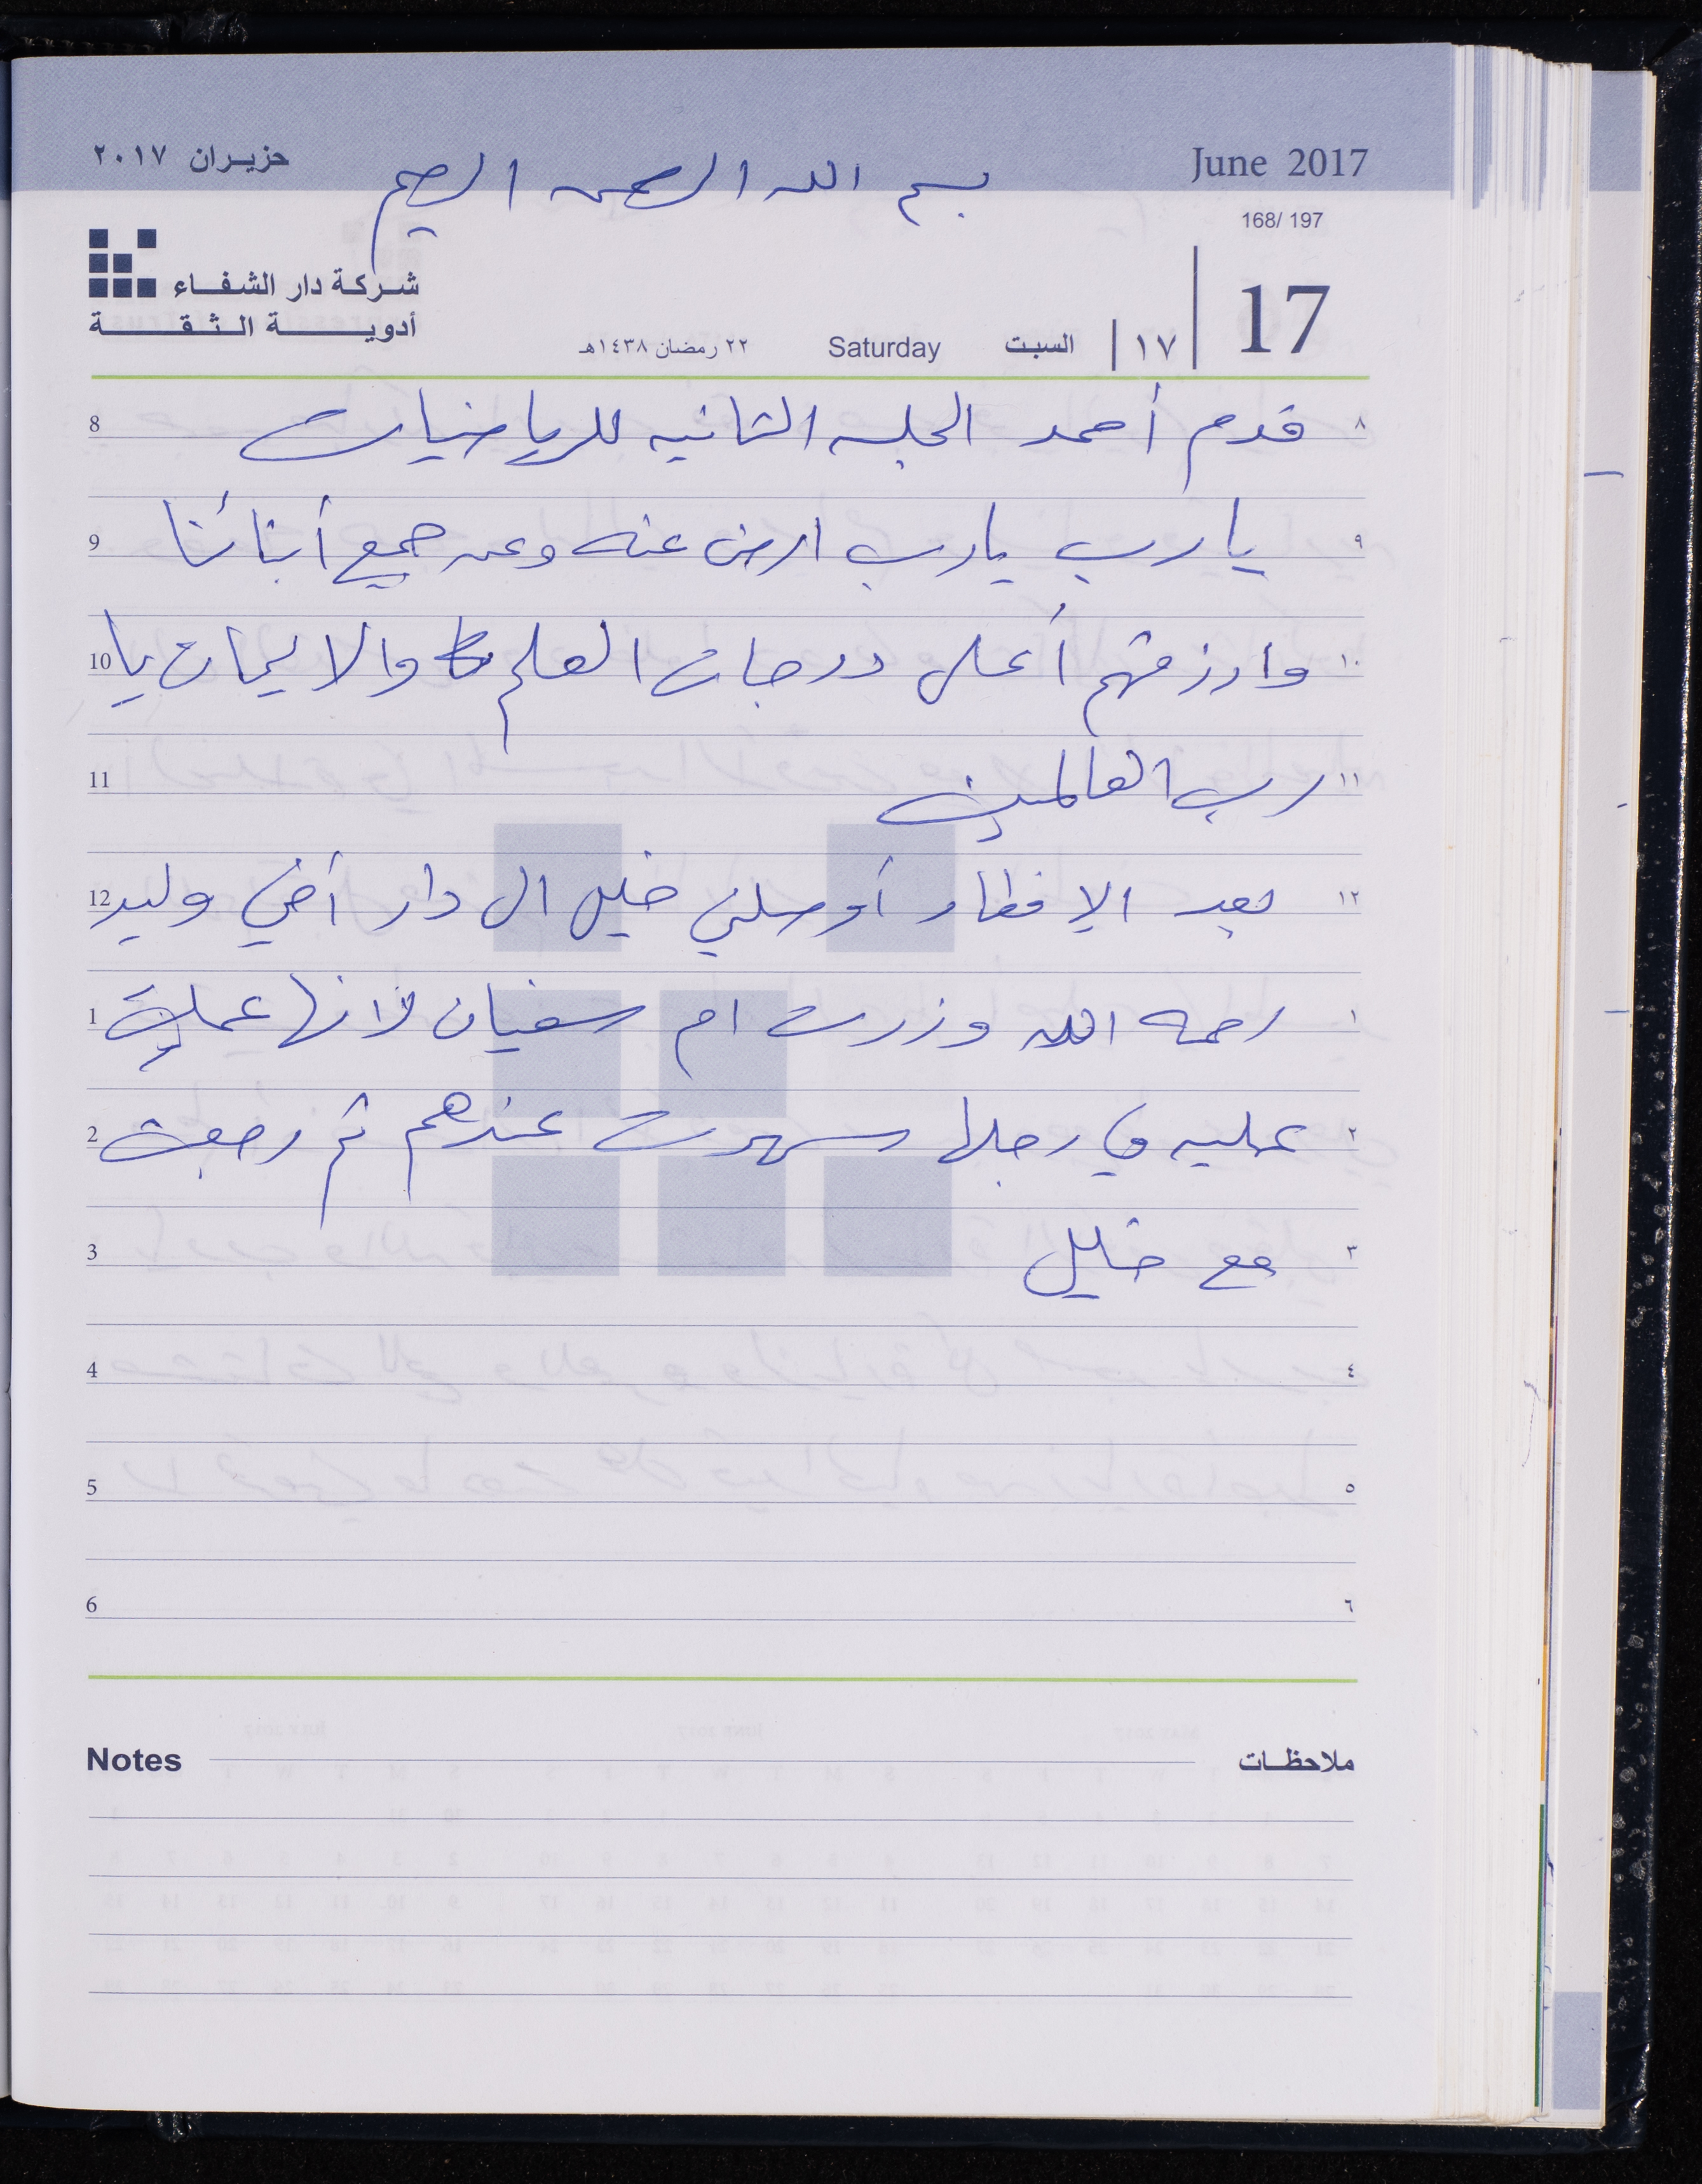 حزيـران ٢٠١٧
June 2017
بسم الله الرحمن الرحيم
168/ 197
شـركـة دار الشفـــاء
أدويـــــــة الــثــقــــــة
17
١٧
السبت
Saturday
٢٢ رمضان ١٤٣٨هـ
8 قدم أحمد الجلسه الثانيه للرياضيات ٨
9 يا رب يارب ارض عنه وعن جميع أبنائنا ٩
10 وارزقهم أعلى درجات العلم والايمان يا ١٠
11 رب العالمين ١١
12 بعد الإفطار أوصلني خليل الى دار أخي وليد ١٢
1 رحمه الله وزرت ام سفيان لانها عملت ١
2 عمليه في رجلها سهرت عندهم ثم رجعت ٢
3 مع خليل ٣
4 ٤
5 ٥
6 ٦
Notes ملاحظـات